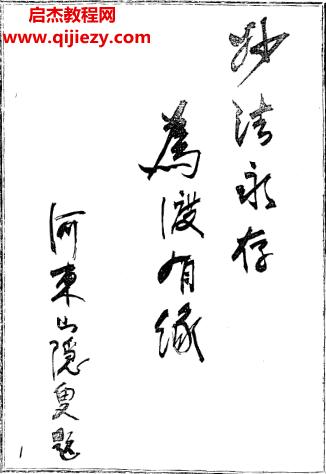 启杰教程网
www.qijiezy.com
妙法永存
為渡有緣
河東山隱叟題
1